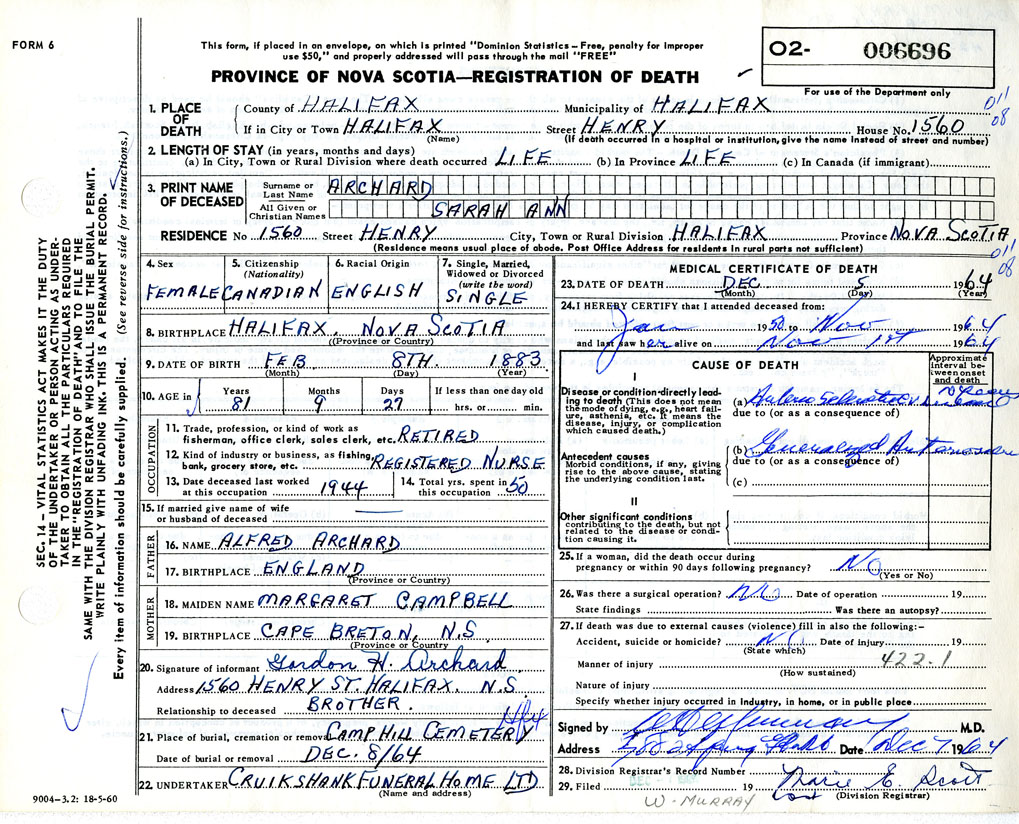 FORM 6
This form, if placed in an envelope, on which is printed "Dominion Statistics – Free, penalty for improper
use $50," and properly addressed will pass through the mail "FREE"
O2- 006696
PROVINCE OF NOVA SCOTIA—REGISTRATION OF DEATH
For use of the Department only
011
08
1. PLACE OF DEATH
County of HALIFAX Municipality of HALIFAX
If in City or Town HALIFAX Street HENRY House No. 1560
(Name) (If death occurred in a hospital or institution, give the name instead of street and number)
2. LENGTH OF STAY (in years, months and days)
(a) In City, Town or Rural Division where death occurred LIFE (b) In Province LIFE (c) In Canada (if immigrant)
3. PRINT NAME OF DECEASED
Surname or Last Name ARCHARD
All Given or Christian Names SARAH ANN
RESIDENCE No 1560 Street HENRY City, Town or Rural Division HALIFAX Province NOVA SCOTIA
(Residence means usual place of abode. Post Office Address for residents in rural parts not sufficient)
011
08
4. Sex FEMALE
5. Citizenship (Nationality) CANADIAN
6. Racial Origin ENGLISH
7. Single, Married, Widowed or Divorced (write the word) SINGLE
8. BIRTHPLACE HALIFAX. NOVA SCOTIA
(Province or Country)
9. DATE OF BIRTH FEB 8TH. 1883
(Month) (Day) (Year)
10. AGE in Years 81 Months 9 Days 27 If less than one day old
hrs. or min.
OCCUPATION
11. Trade, profession, or kind of work as
fisherman, office clerk, sales clerk, etc. RETIRED
12. Kind of industry or business, as fishing,
bank, grocery store, etc. REGISTERED NURSE
13. Date deceased last worked
at this occupation 1944
14. Total yrs. spent in
this occupation 50
15. If married give name of wife
or husband of deceased —
FATHER
16. NAME ALFRED ARCHARD
17. BIRTHPLACE ENGLAND
(Province or Country)
MOTHER
18. MAIDEN NAME MARGARET CAMPBELL
19. BIRTHPLACE CAPE BRETON, N.S.
(Province or Country)
20. Signature of informant Gordon H. Archard
Address 1560 HENRY ST. HALIFAX. N.S.
Relationship to deceased BROTHER.
Hfx
21. Place of burial, cremation or removal CAMP HILL CEMETERY
Date of burial or removal DEC. 8/64
22. UNDERTAKER CRUIKSHANK FUNERAL HOME LTD
(Name and address)
MEDICAL CERTIFICATE OF DEATH
23. DATE OF DEATH DEC 5 1964
(Month) (Day) (Year)
24. I HEREBY CERTIFY that I attended deceased from:
Jan 1950 to Nov 1964
and last saw her alive on Nov 1st 1964
CAUSE OF DEATH
Approximate interval between onset and death
I
Disease or condition directly leading to death (This does not mean the mode of dying, e.g., heart failure, asthenia, etc. It means the disease, injury, or complication which caused death.)
(a)
due to (or as a consequence of)
Antecedent causes
Morbid conditions, if any, giving rise to the above cause, stating the underlying condition last.
(b) Generalized
due to (or as a consequence of)
(c)
II
Other significant conditions
contributing to the death, but not related to the disease or condition causing it.
25. If a woman, did the death occur during
pregnancy or within 90 days following pregnancy? NO
(Yes or No)
26. Was there a surgical operation? NO Date of operation 19
State findings Was there an autopsy?
27. If death was due to external causes (violence) fill in also the following:-
Accident, suicide or homicide? NO Date of injury 19
(State which)
422.1
Manner of injury
(How sustained)
Nature of injury
Specify whether injury occurred in industry, in home, or in public place
Signed by M.D.
Address Date Dec 7 1964
28. Division Registrar's Record Number
29. Filed 19 Marie E. Scott
(Division Registrar)
W. MURRAY
SEC. 14 – VITAL STATISTICS ACT MAKES IT THE DUTY
OF THE UNDERTAKER OR PERSON ACTING AS UNDER-
TAKER TO OBTAIN ALL THE PARTICULARS REQUIRED
IN THE "REGISTRATION OF DEATH" AND TO FILE THE
SAME WITH THE DIVISION REGISTRAR WHO SHALL ISSUE THE BURIAL PERMIT.
WRITE PLAINLY WITH UNFADING INK. THIS IS A PERMANENT RECORD.
Every item of information should be carefully supplied. (See reverse side for instructions.)
9004-3.2: 18-5-60